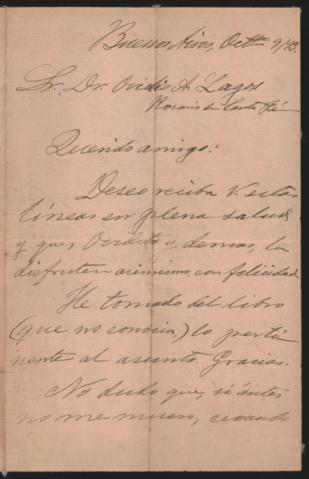 Buenos Aires, Octbre 9/
Sr. Dr. Ovidio A. Lagos
Rosario de Santa Fé
Querido amigo:
Deseo reciba V. estas
líneas en plena salud
y que Ovidito y demas, la
disfruten asimismo, con felicidad
He tomado del libro
(que no conocia) lo perti
nente al asunto. Gracias.
No dudo que, si ántes
no me muero, cuando